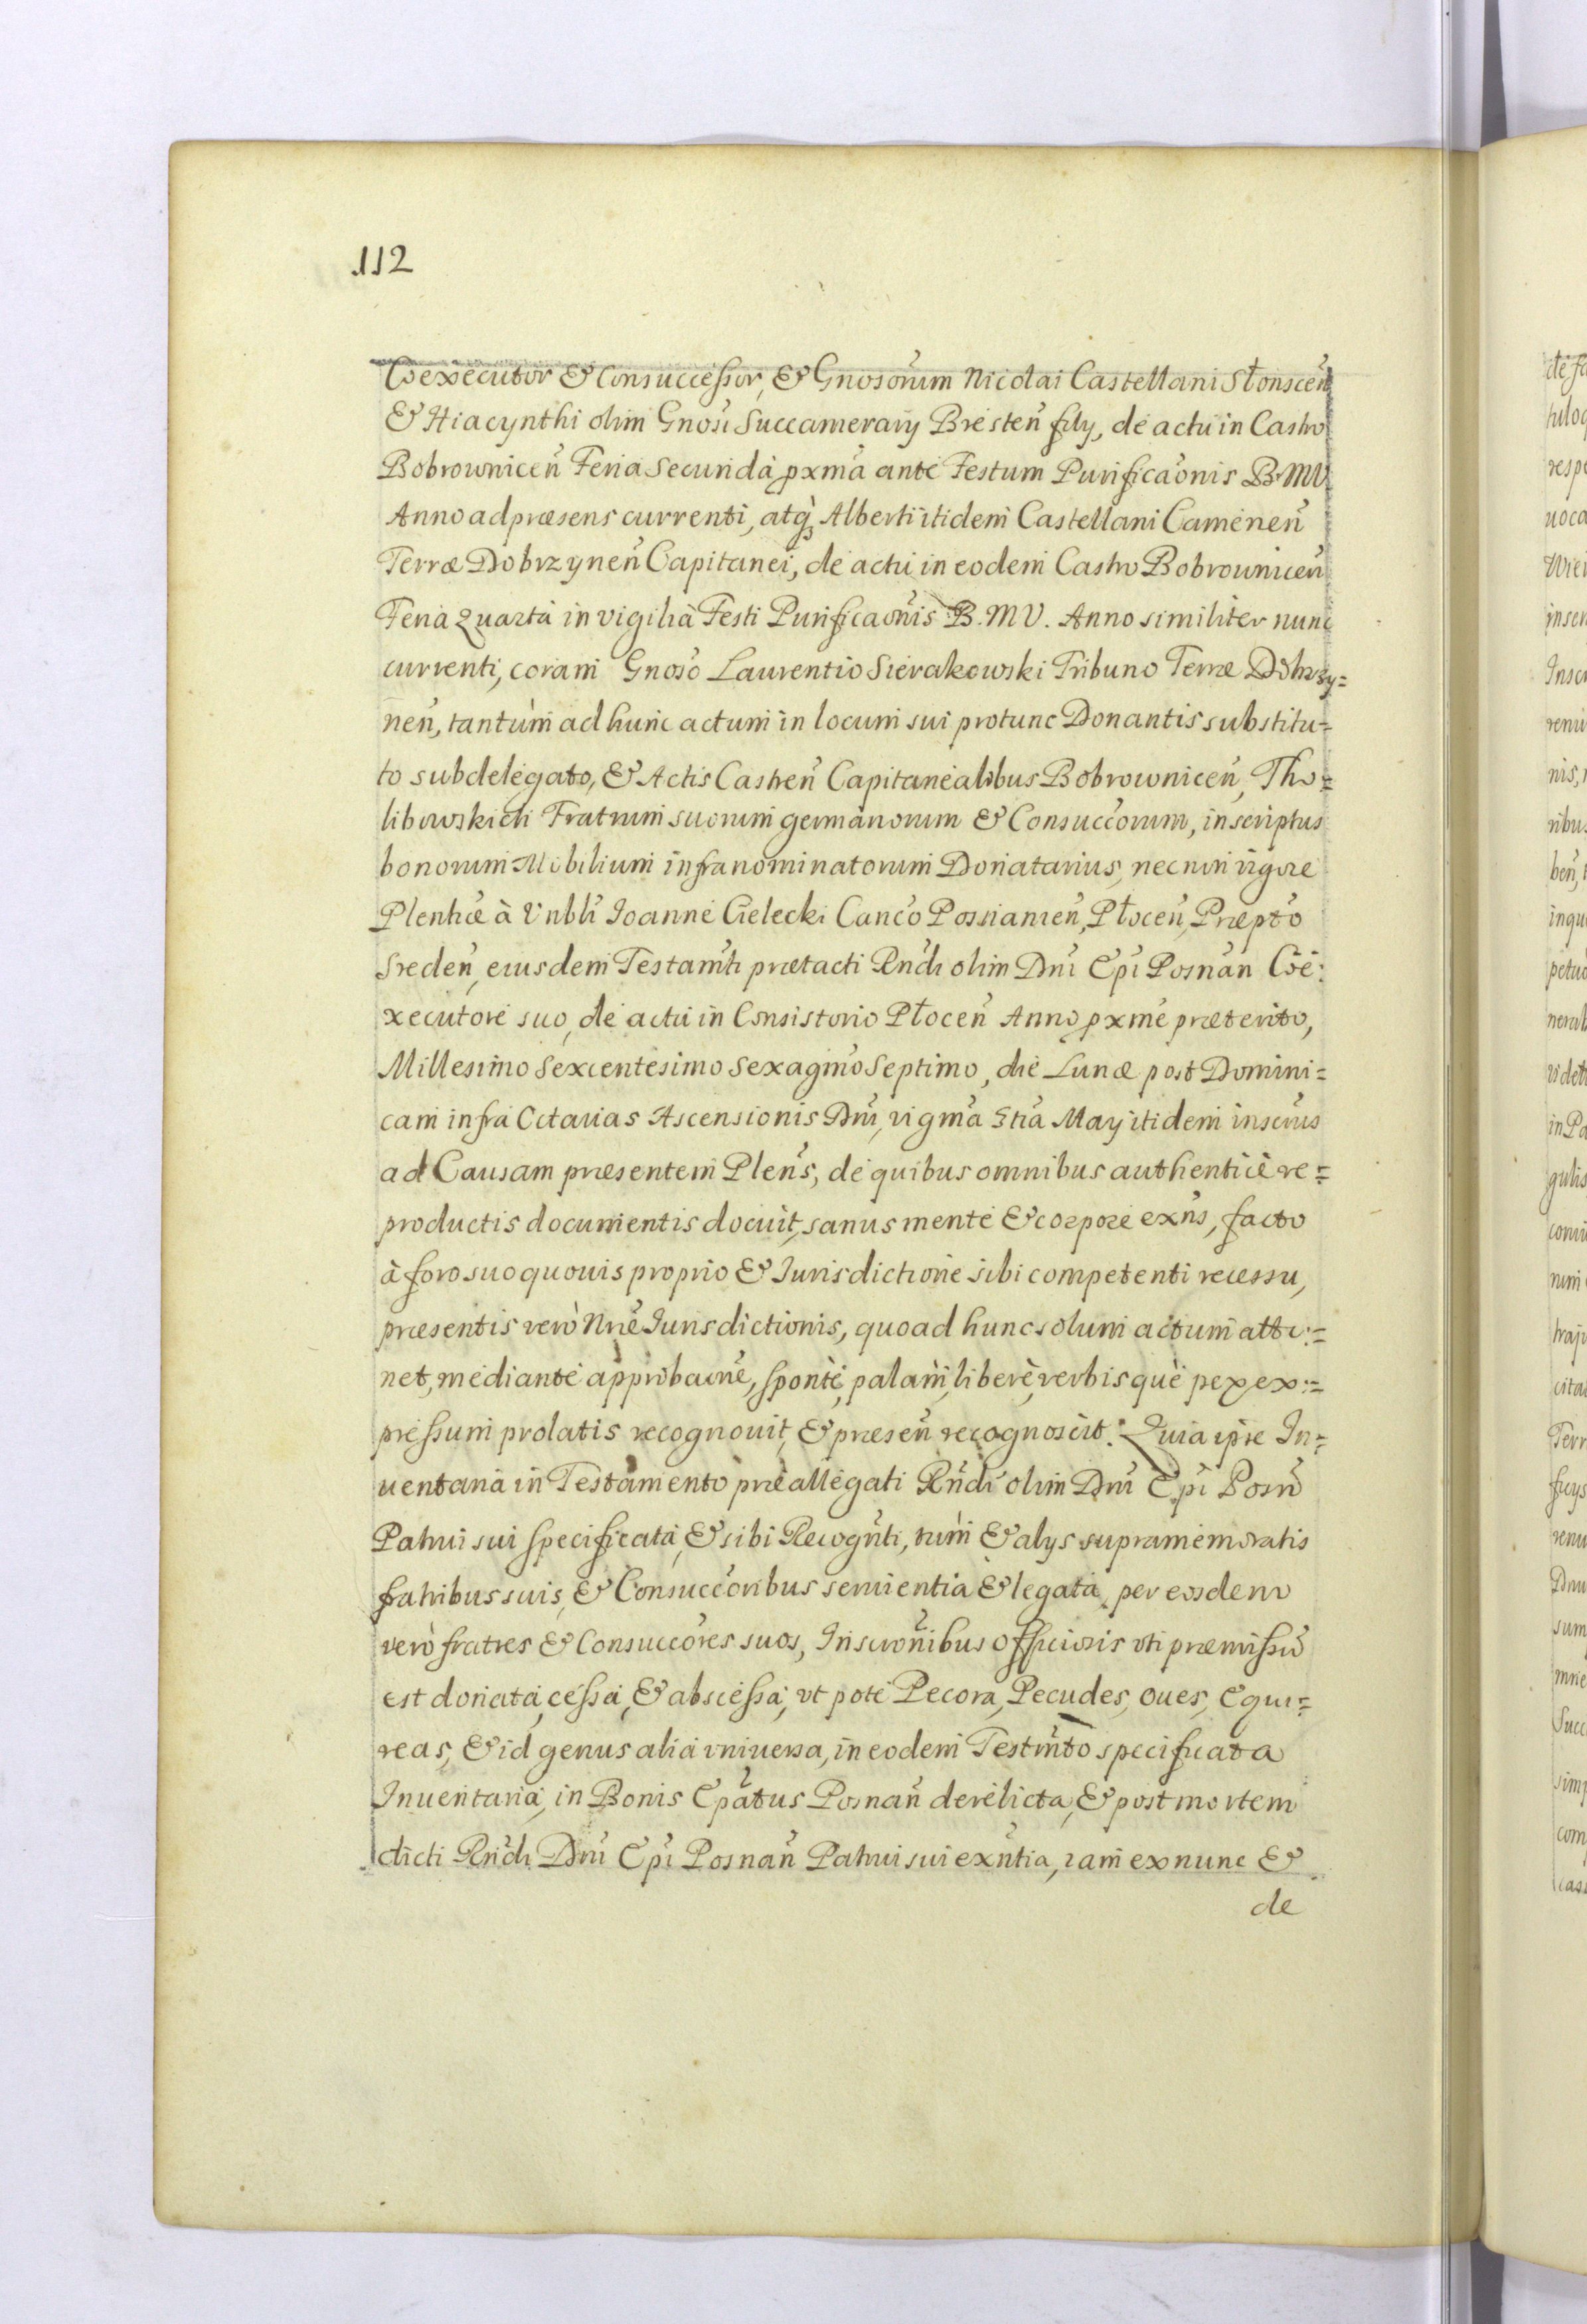 112
Coexecutor & Consuccessor, & Gnosorum Nicolai Castellani Słonscen̄
& Hiacynthi olim Gnosi Succamerarij Bresten̄ filij, de actu in Castro
Bobrownicen̄ Feria Secunda pxma ante Festum Purificaonis B. M V
Anno ad præsens currenti, atq; Alberti itidem Castellani Camenen̄
Terræ Dobrzynen̄ Capitanei, de actu in eodem Castro Bobrownicen̄
Feria Quarta in vigilia Festi Purificaonis B. M V. Anno similiter nunc
currenti, coram Gnoso Laurentio Sierakowski Tribuno Terræ Dobrzy=
nen̄, tantùm ad hunc actum in locum sui protunc Donantis substitu=
to subdelegato, & Actis Castren̄ Capitanealibus Bobrownicen̄, Tho=
libowskich Fratrum suorum germanorum & Consuccorum, inscriptus
bonorum Mobilium infranominatorum Donatarius, necnon vigore
Plenhæ à Vnbli Joanne Cielecki Canco Posnanien̄, Płocen̄, Præpto
Sreden̄, eiusdem Testamti prætacti Rndi olim Dni Epi Posnan Coe:
xecutore suo, de actu in Consistorio Płocen̄ Anno pxme præterito,
Millesimo Sexcentesimo Sexagmo Septimo, die Lunæ post Domini=
cam infra Octauas Ascensionis Dni, vigma 3tia Maij itidem inscrus
ad Causam præsentem Plens, de quibus omnibus authenticè re=
productis documentis docuit, sanus mente & corpore exns, facto
à foro suo quouis proprio & Jurisdictione sibi competenti recessu,
præsentis verò Nræ Jurisdictionis, quoad hunc solum actum atti:=
net, mediante approbaone, spontè, palàm, liberè, verbisquè per ex:=
pressum prolatis recognouit, & præsen̄ recognoscit. Quia ipse In=
uentaria in Testamento præallegati Rndi olim Dni Epi Posn̄
Patrui sui specificata, & sibi Recognti, tùm & alijs supramemoratis
fratribus suis, & Consuccoribus seruientia & legata, per eosdem
verò fratres & Consuccores suos, Inscronibus officiosis vti præmissū
est donata, cessa, & abscessa, vt pote Pecora, Pecudes, oues, Equi=
reas, & id genus alia vniuersa, in eodem Testmto specificata
Inuentaria, in Bonis Epatus Posnan̄ derelicta, & post mortem
dicti Rndi Dni Epi Posnan̄ Patrui sui exntia, iam ex nunc &
de